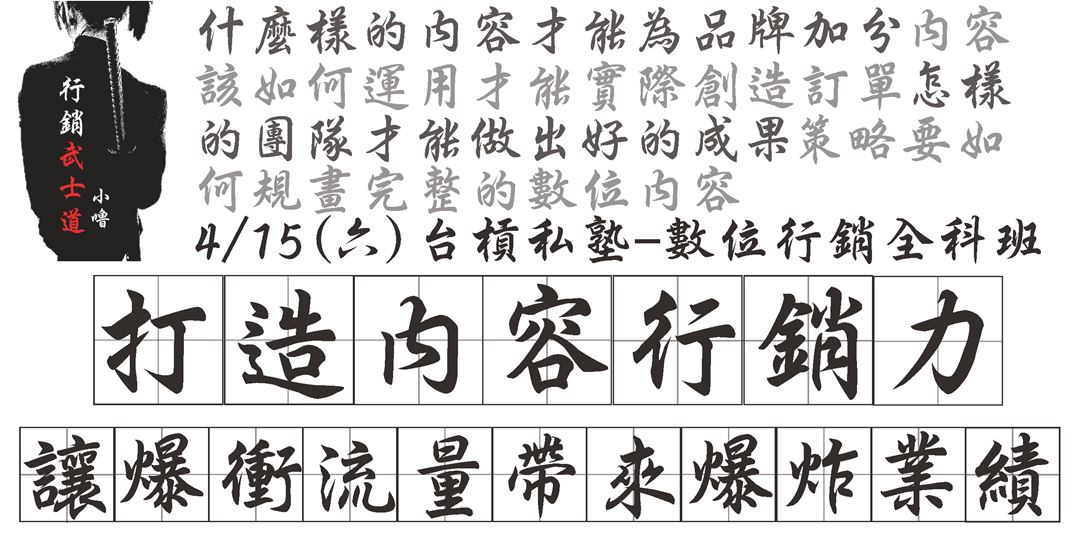 行銷武士道
小嚕
什麼樣的內容才能為品牌加分內容
該如何運用才能實際創造訂單怎樣
的團隊才能做出好的成果策略要如
何規畫完整的數位內容
4/15(六)台槓私塾-數位行銷全科班
打造內容行銷力
讓爆衝流量帶來爆炸業績